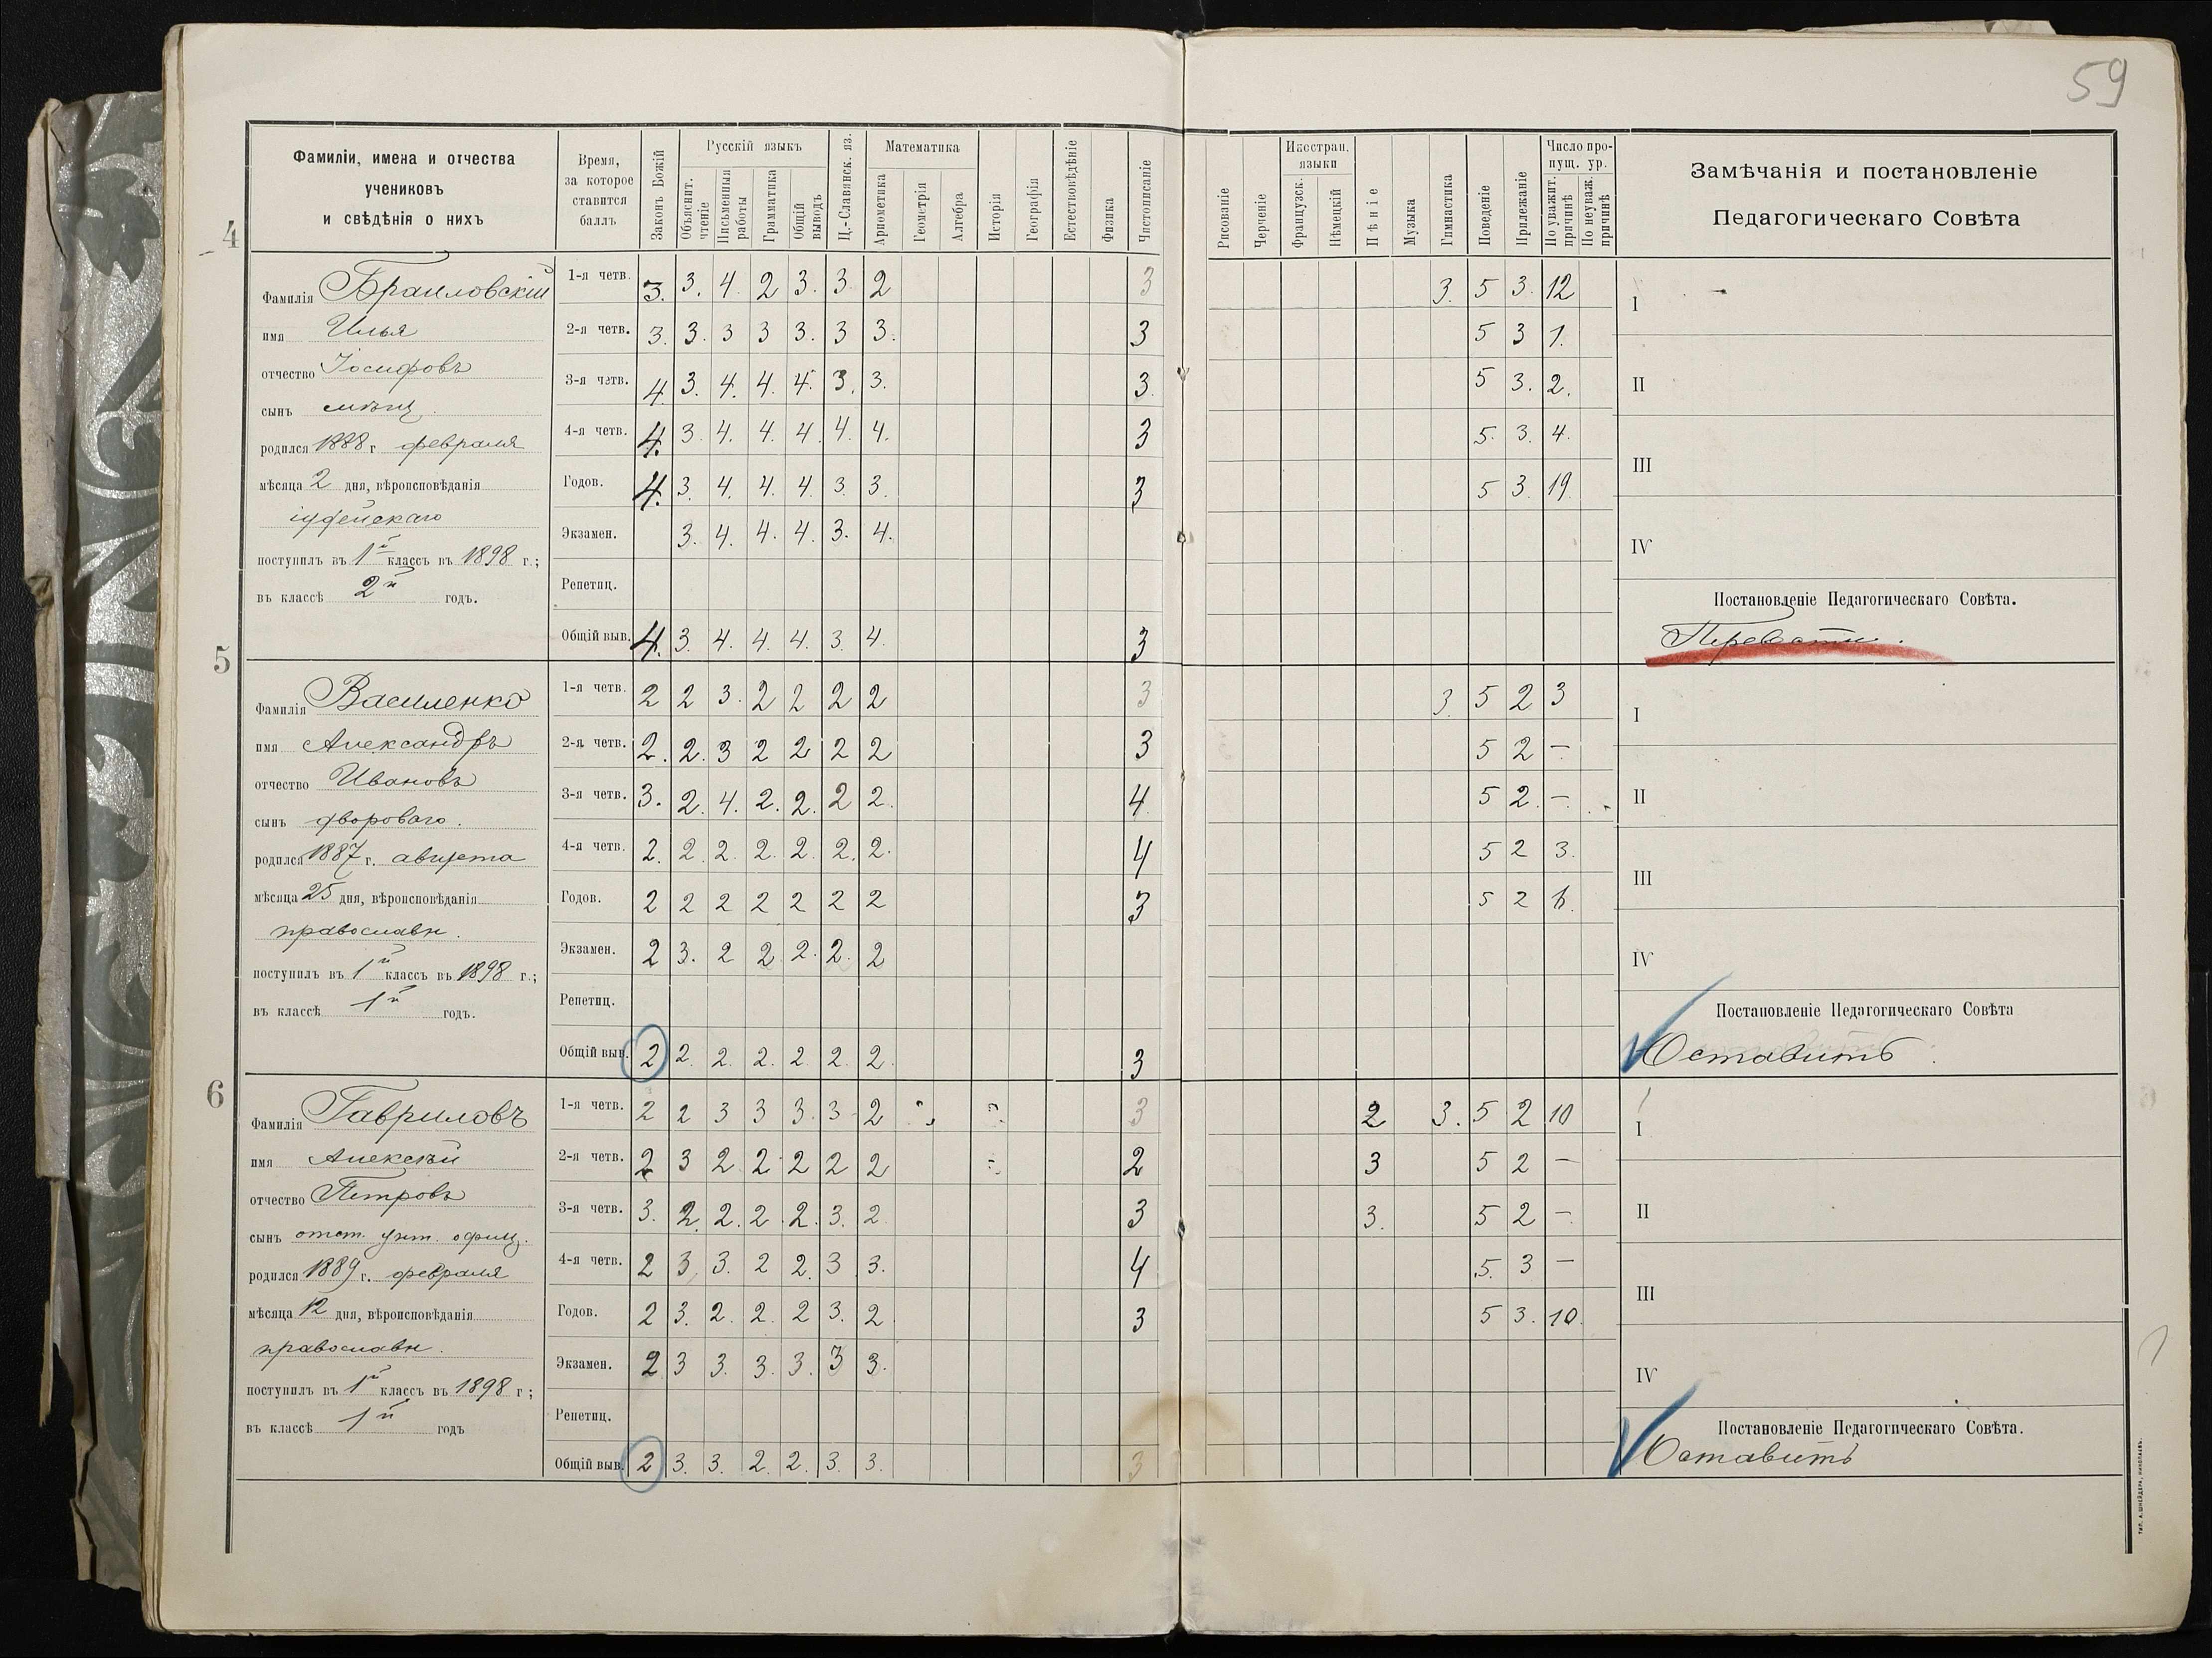 59
Фамиліи, имена и отчества
учениковъ
и свѣдѣнія о нихъ
Время,
за которое
ставится
баллъ
Законъ Божій
Русскій языкъ
Объяснит. чтеніе
Письменныя работы
Грамматика
Общій выводъ
Ц.-Славянск. яз.
Математика
Ариөметика
Геометрія
Алгебра
Исторія
Географія
Естествовѣдѣніе
Физика
Чистописаніе
Рисованіе
Черченіе
Иностран. языки
Французск.
Нѣмецкій
Пѣніе
Музыка
Гимнастика
Поведеніе
Прилежаніе
Число пропущ. ур.
По уважит. причинѣ
По неуваж. причинѣ
Замѣчанія и постановленіе
Педагогическаго Совѣта
4
Фамилія Браиловскій
имя Илья
отчество Іосифовъ
сынъ мѣщ.
родился 1888 г февраля
мѣсяца 2 дня, вѣроисповѣданія
іудейскаго
поступилъ въ 1й классъ въ 1898 г.;
въ классѣ 2й годъ.
1-я четв. 3. 3. 4. 2 3. 3 2 3 3. 5 3. 12
2-я четв. 3. 3. 3 3 3. 3 3. 3 5 3 1.
3-я четв. 4 3. 4. 4. 4. 3. 3. 3. 5 3. 2.
4-я четв. 4. 3. 4. 4. 4. 4. 4. 3 5. 3. 4.
Годов. 4. 3. 4. 4. 4. 3. 3. 3 5 3. 19.
Экзамен. 3. 4. 4. 4. 3. 4.
Репетиц.
Общій выв. 4. 3. 4. 4. 4. 3. 4. 3
I
II
III
IV
Постановленіе Педагогическаго Совѣта.
Перевести.
5
Фамилія Василенко
имя Александръ
отчество Ивановъ
сынъ двороваго.
родился 1887 г. августа
мѣсяца 25 дня, вѣроисповѣданія
православн.
поступилъ въ 1й классъ въ 1898 г.;
въ классѣ 1й годъ.
1-я четв. 2 2 3. 2 2 2 2 3 3. 5 2 3
2-я четв. 2. 2. 3 2 2 2 2 3 5 2 —
3-я четв. 3. 2. 4. 2. 2. 2 2. 4 5 2. —.
4-я четв. 2. 2. 2. 2. 2. 2. 2. 4 5 2 3.
Годов. 2 2 2 2 2 2 2 3 5 2 6.
Экзамен. 2 3. 2 2 2. 2. 2
Репетиц.
Общій выв. 2 2. 2. 2. 2. 2. 2. 3
I
II
III
IV
Постановленіе Педагогическаго Совѣта
Оставить.
6
Фамилія Гавриловъ
имя Алексѣй
отчество Петровъ
сынъ отст. унт. офиц.
родился 1889 г. февраля
мѣсяца 12 дня, вѣроисповѣданія
православн.
поступилъ въ 1й классъ въ 1898 г;
въ классѣ 1й годъ
1-я четв. 2 2 3 3 3. 3 2 3 2 3. 5 2 10
2-я четв. 2 3 2 2 2 2 2 2 3 5 2 —
3-я четв. 3. 2. 2. 2. 2. 3. 2. 3 3. 5 2 —.
4-я четв. 2 3 3. 2 2. 3 3. 4 5. 3 —
Годов. 2 3. 2. 2. 2 3. 2. 3 5 3. 10.
Экзамен. 2 3 3. 3. 3. 3 3.
Репетиц.
Общій выв. 2 3. 3. 2. 2. 3. 3. 3
I
II
III
IV
Постановленіе Педагогическаго Совѣта.
Оставить
ТИП. А. ШНЕЙДЕРА, НИКОЛАЕВЪ.